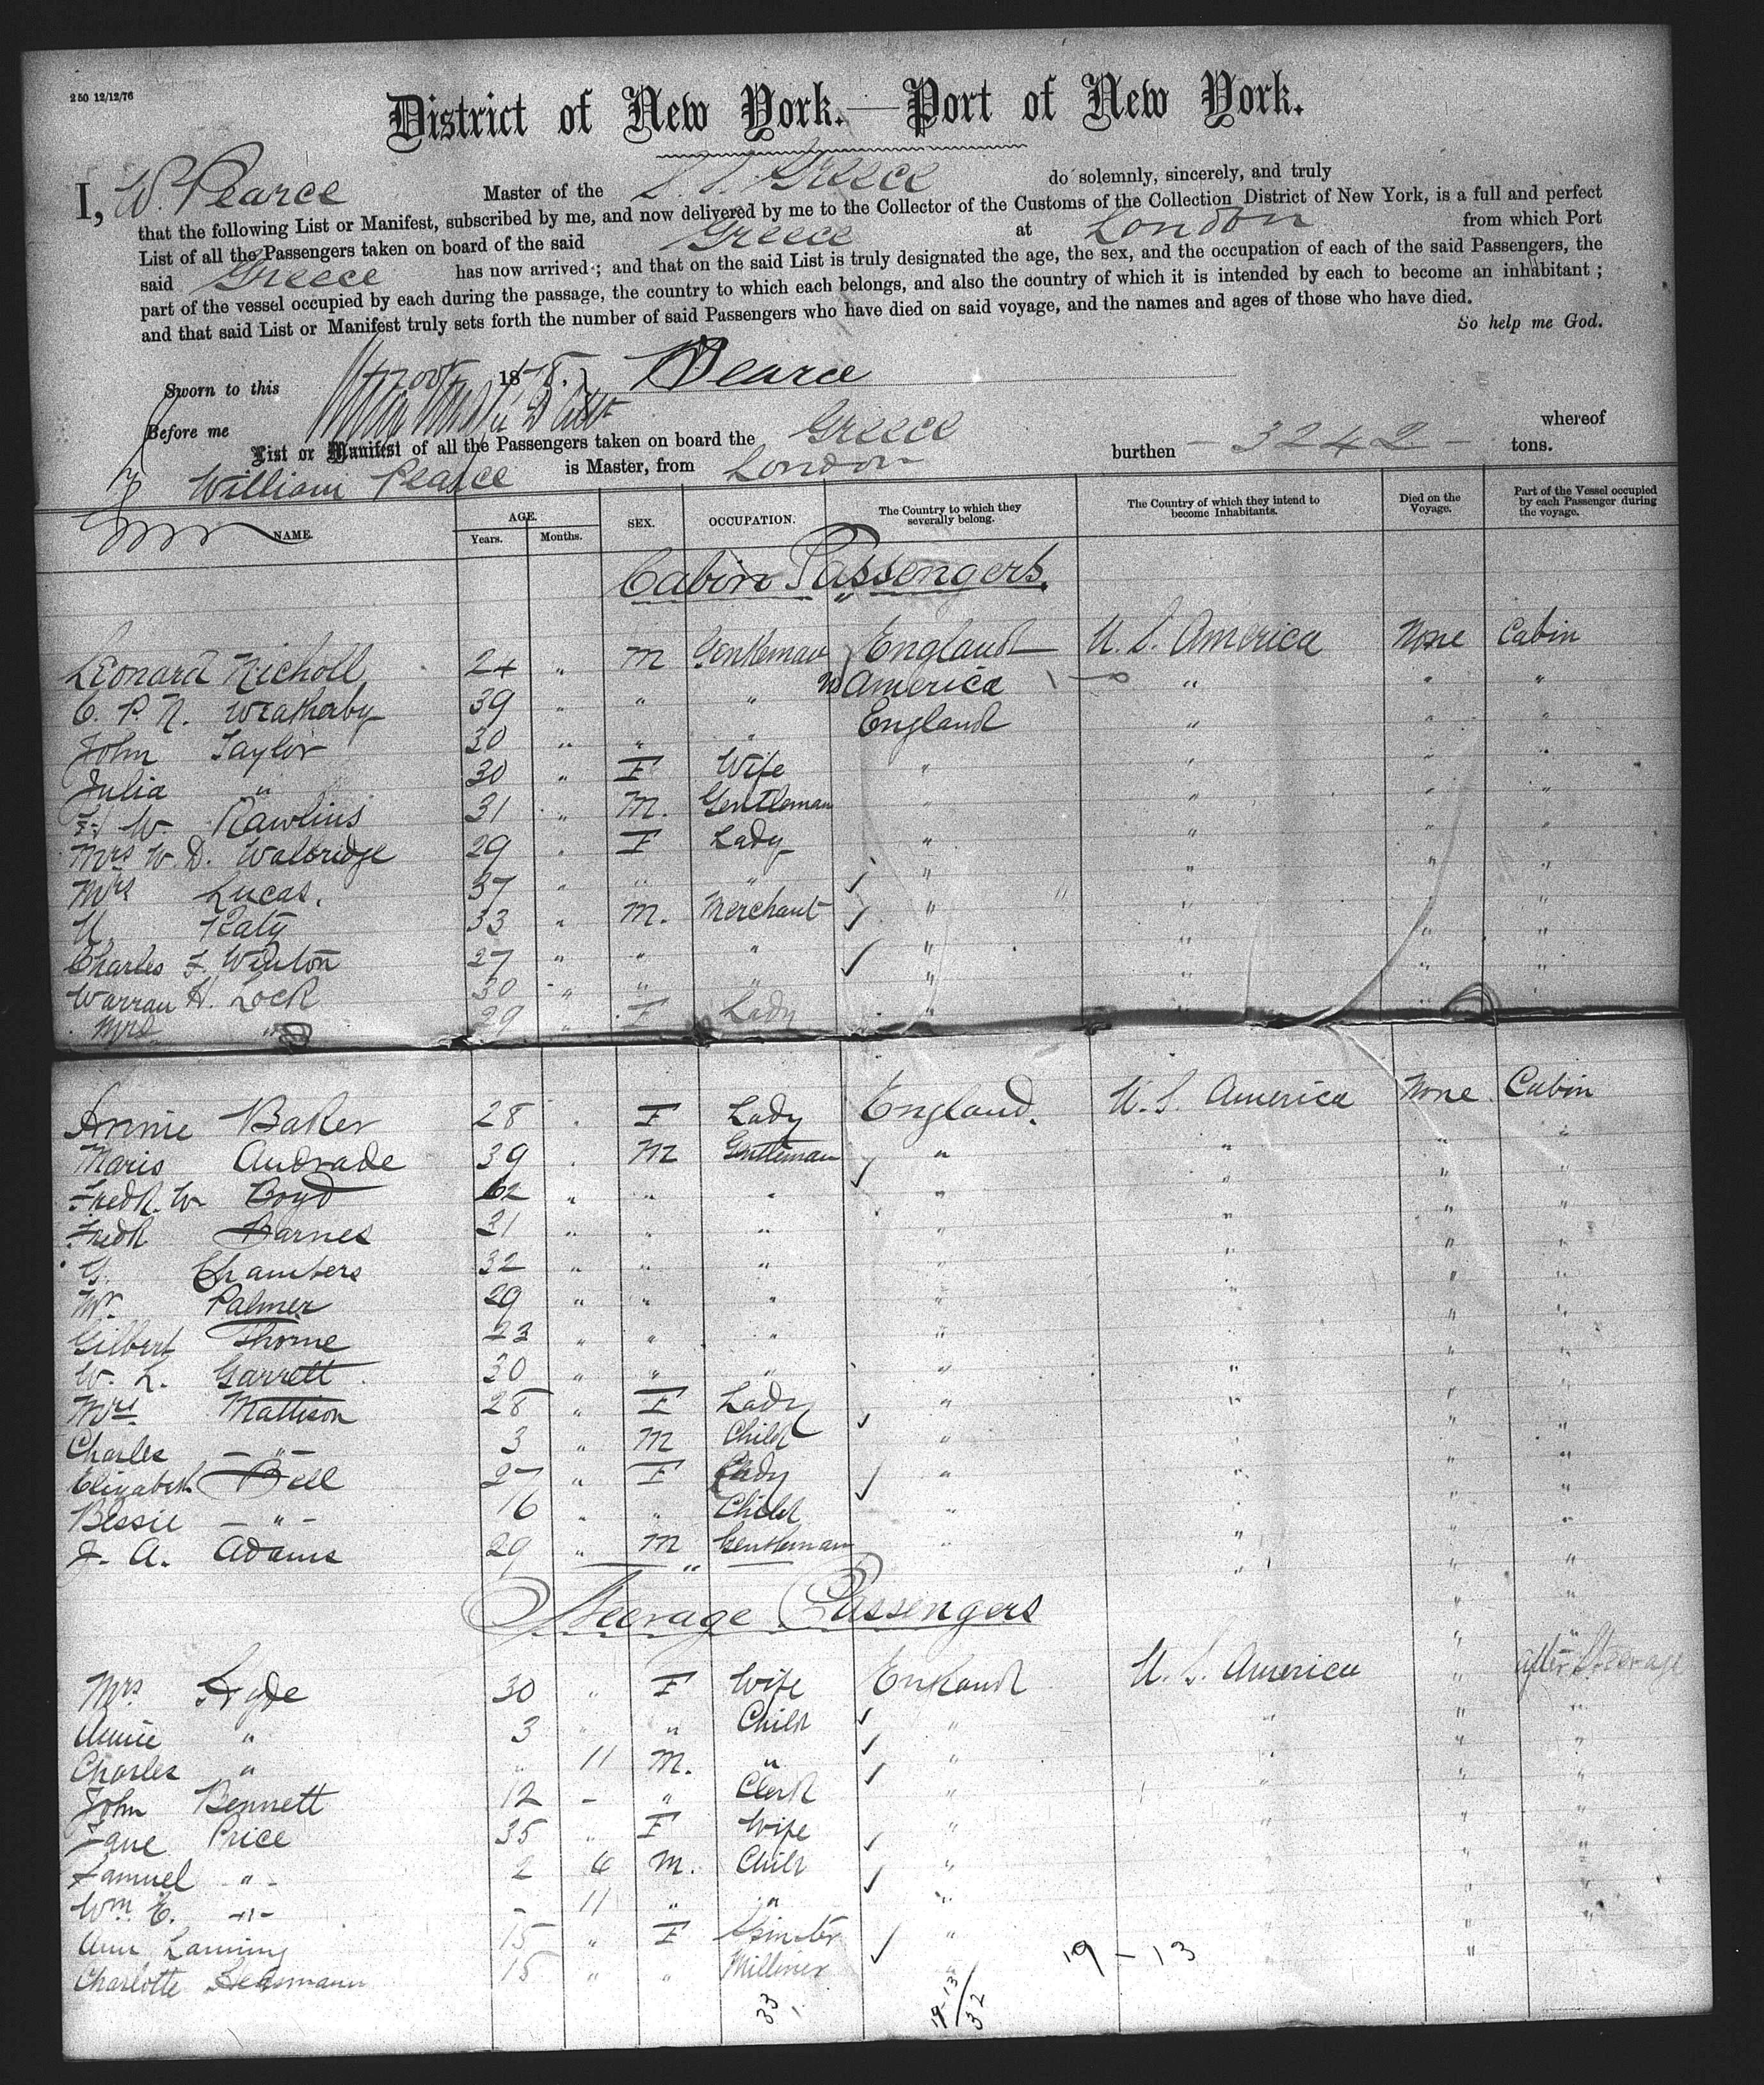 250 12/12/76
District of New York.—Port of New York.
I, W. Pearce Master of the S. S. Greece do solemnly, sincerely, and truly
that the following List or Manifest, subscribed by me, and now delivered by me to the Collector of the Customs of the Collection District of New York, is a full and perfect
List of all the Passengers taken on board of the said Greece at London from which Port
said Greece has now arrived; and that on the said List is truly designated the age, the sex, and the occupation of each of the said Passengers, the
part of the vessel occupied by each during the passage, the country to which each belongs, and also the country of which it is intended by each to become an inhabitant;
and that said List or Manifest truly sets forth the number of said Passengers who have died on said voyage, and the names and ages of those who have died.
So help me God.
Sworn to this 1878. W Pearce
Before me
List or Manifest of all the Passengers taken on board the Greece whereof
William Pearce is Master, from London burthen - 3242 - tons.
NAME. AGE. Years. Months. SEX. OCCUPATION. The Country to which they severally belong. The Country of which they intend to become Inhabitants. Died on the Voyage. Part of the Vessel occupied by each Passenger during the voyage.
Cabin Passengers.
Leonard Nicholl 24 " M Gentleman England U. S. America None Cabin
C. P. N. Weatherby 39 " " " US America " " "
John Taylor 30 " " " England " " "
Julia " 30 " F Wife " " " "
W. Rawlins 31 " M. Gentleman " " " "
Mrs W. D. Walbridge 29 " F Lady " " " "
Mrs Lucas. 37 " " " " " " "
33 " M. Merchant " " " "
Charles F Winton 27 " " " " " " "
Warran H. Lock 30 " " " " " " "
Mrs " 29 " F Lady " " " "
Annie Baker 28 " F Lady England. U. S. America None Cabin
Maris Andrade 39 " M Gentleman " " " "
Fredk. W Boyd 62 " " " " " " "
Fredk Barnes 21 " " " " " " "
G. Chambers 32 " " " " " " "
Mr. Palmer 29 " " " " " " "
Gilbert Thorne 23 " " " " " " "
W. L. Garrett 30 " " " " " " "
Mrs Mattison 28 " F Lady " " " "
Charles - " - 3 " M Child " " " "
Elizabeth Bell 27 " F Lady " " " "
Bessie - " - 16 " " Child " " " "
J. A. Adams 29 " M Gentleman " " " "
Steerage Passengers
Mrs Hyde 30 " F Wife England U. S. America " after Steerage
Annie " 3 " " Child " " " "
Charles " " 11 M. " " " " "
John Bennett 12 - " Clerk " " " "
Jane Price 35 " F Wife " " " "
Samuel - " - 2 6 M. Child " " " "
Wm E. - " - - 11 " " " " " "
Ann Lanning 15 " F Spinster " " "
Charlotte 18 " " Milliner "
19 - 13
33
19-13/32